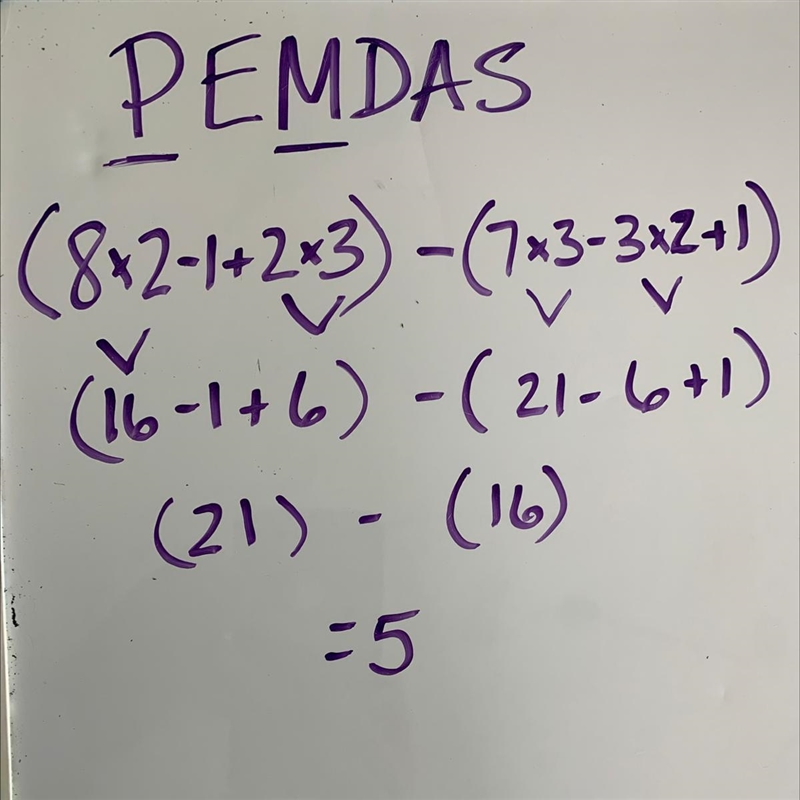 PEMDAS
(8×2-1+2×3) -(7×3-3×2+1)
(16-1+6) -(21-6+1)
(21) - (16)
=5